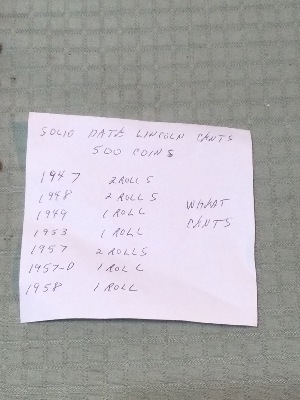 SOLID DATE LINCOLN CENTS
500 COINS
1947 2 ROLLS
1948 2 ROLLS
1949 1 ROLL
1953 1 ROLL
1957 2 ROLLS
1957-D 1 ROLL
1958 1 ROLL
WHEAT
CENTS